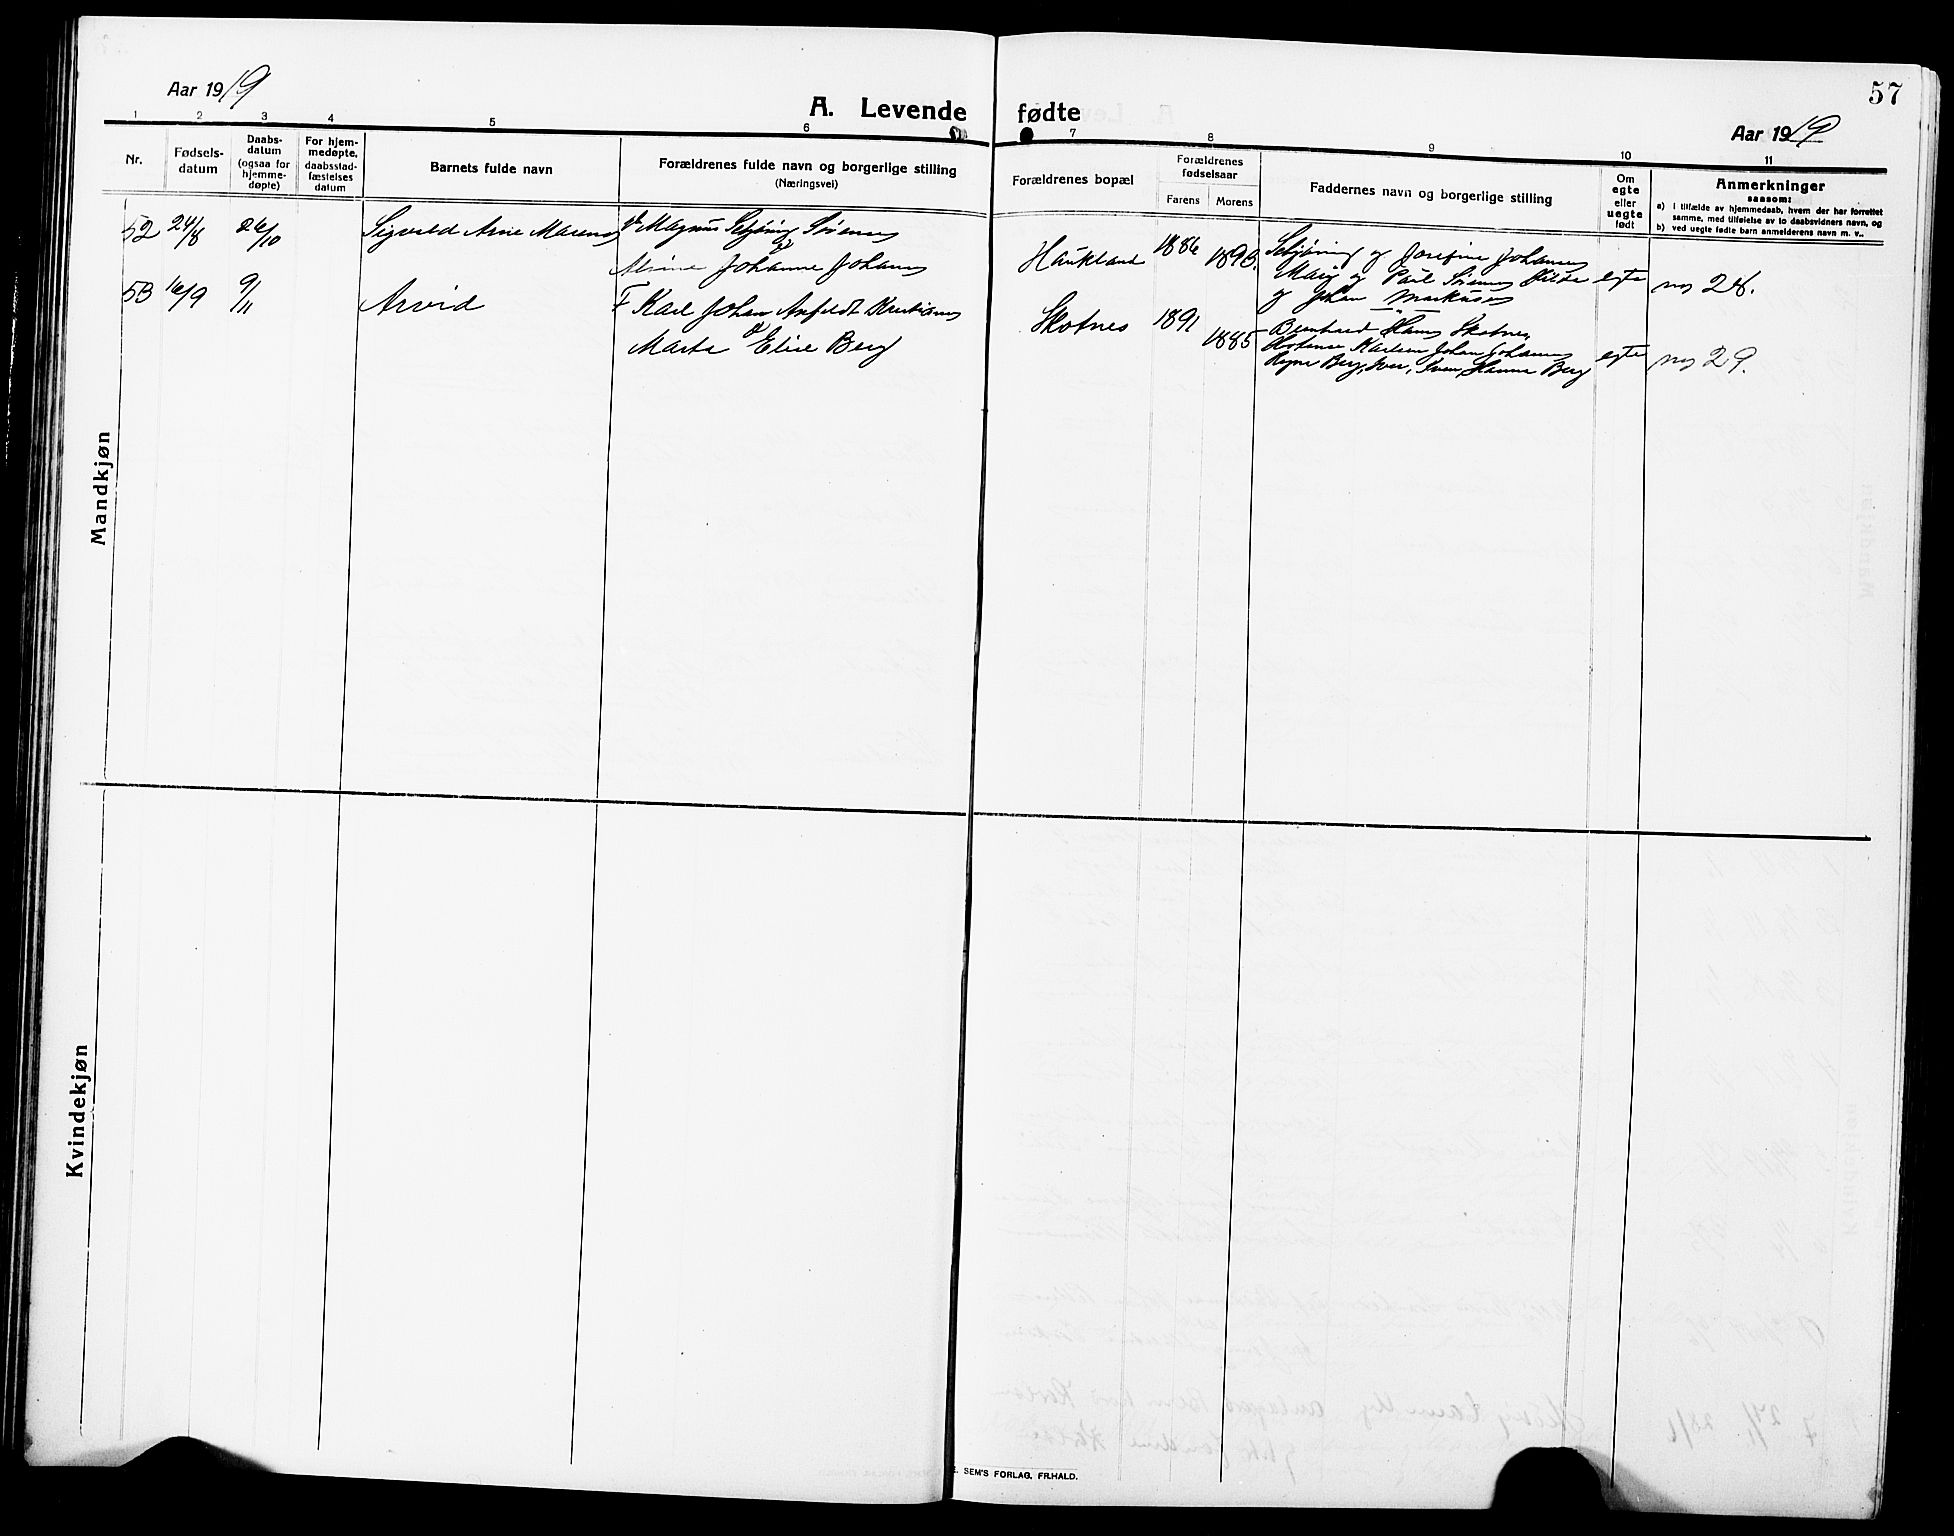 57
Aar 1919
A. Levende fødte
Aar 1919
1 2 3 4 5 6 7 8 9 10 11
Nr.
Fødsels-
datum
Daabs-
datum
(ogsaa for
hjemme-
døpte)
For hjem-
medøpte,
daabsstad-
fæstelses
datum
Barnets fulde navn
Forældrenes fulde navn og borgerlige stilling
(Næringsvei)
Forældrenes bopæl
Forældrenes
fødselsaar
Farens Morens
Faddernes navn og borgerlige stilling
Om
egte
eller
uegte
født
Anmerkninger
saasom:
a) i tilfælde av hjemmedaab, hvem der har forrettet
samme, med tilføielse av to daabsvidners navn, og
b) ved uegte fødte barn anmelderens navn m. v..
Mandkjøn
52 24/8 26/10 Sigvald Arne Marenus Magnus Schjøning Sørensen
Johanne Johansen
Haukland 1886 1893
Schjøning og Josefine Johansen
og Paul Sørensen
og Johan Markusen
egte
no 28.
53 16/9 9/11 Arvid F Karl Johan Anfeldt Kristiansen
Marta Elise Berg
Skotnes 1891 1885
Bernhard Hans Skotnes,
Karlsen Johan Johansen
Berg, Iver, Hanna Berg
egte
no 29.
Kvindekjøn
E. SEM'S FORLAG, FR.HALD.